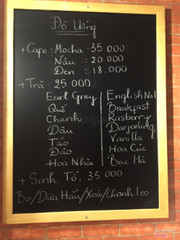 Đồ Uống
+ Cafe: Mocha: 35 000
Nâu: 20.000
Đen: 18.000
+ Trà: 25 000
Earl Grey English No1
Quế Breakfast
Chanh Rasberry
Dâu Darjeeling
Táo Vanilla
Đào Hoa Cúc
Hoa Nhài Bạc Hà
+ Sinh Tố: 35 000
Bơ/Dưa Hấu/Xoài/Chanh leo